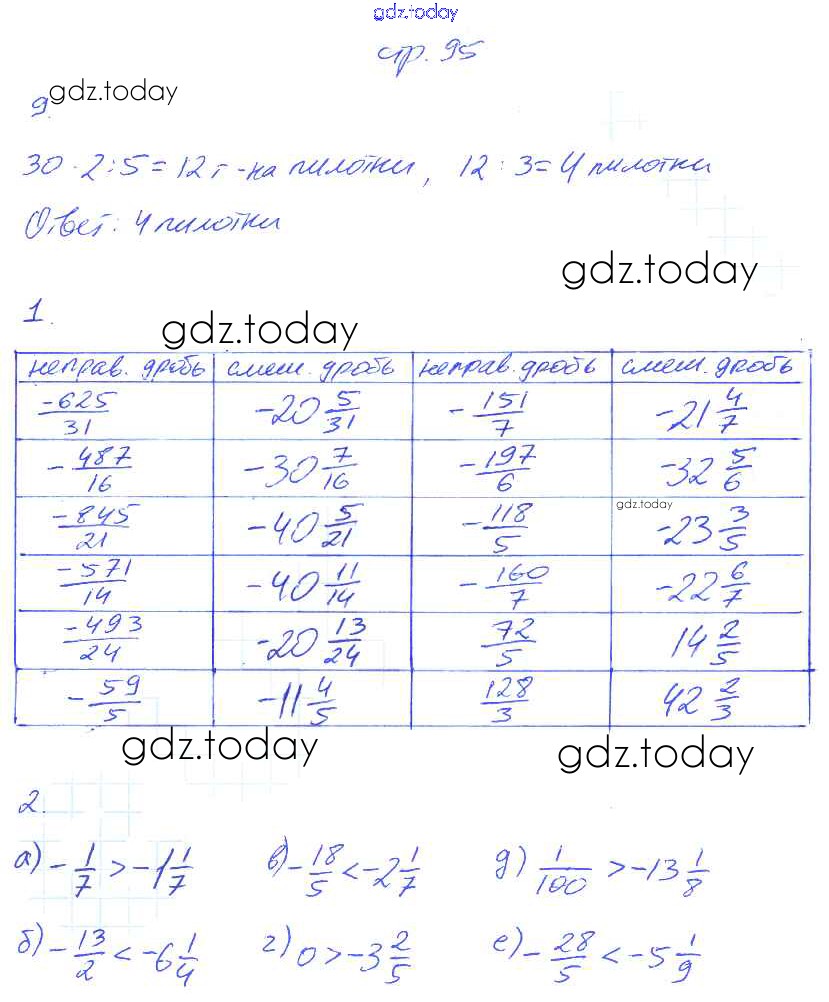 gdz.today
стр. 95
9. gdz.today
30 · 2 : 5 = 12 г - на пилотки, 12 : 3 = 4 пилотки
Ответ: 4 пилотки
gdz.today
1. gdz.today
неправ. дробь смеш. дробь неправ. дробь смеш. дробь
-625/31 -20 5/31 -151/7 -21 4/7
-487/16 -30 7/16 -197/6 -32 5/6
gdz.today
-845/21 -40 5/21 -118/5 -23 3/5
-571/14 -40 11/14 -160/7 -22 6/7
-493/24 -20 13/24 72/5 14 2/5
-59/5 -11 4/5 128/3 42 2/3
gdz.today gdz.today
2.
а) -1/7 > -1 1/7 в) -18/5 < -2 1/7 д) 1/100 > -13 1/8
б) -13/2 < -6 1/4 г) 0 > -3 2/5 е) -28/5 < -5 1/9